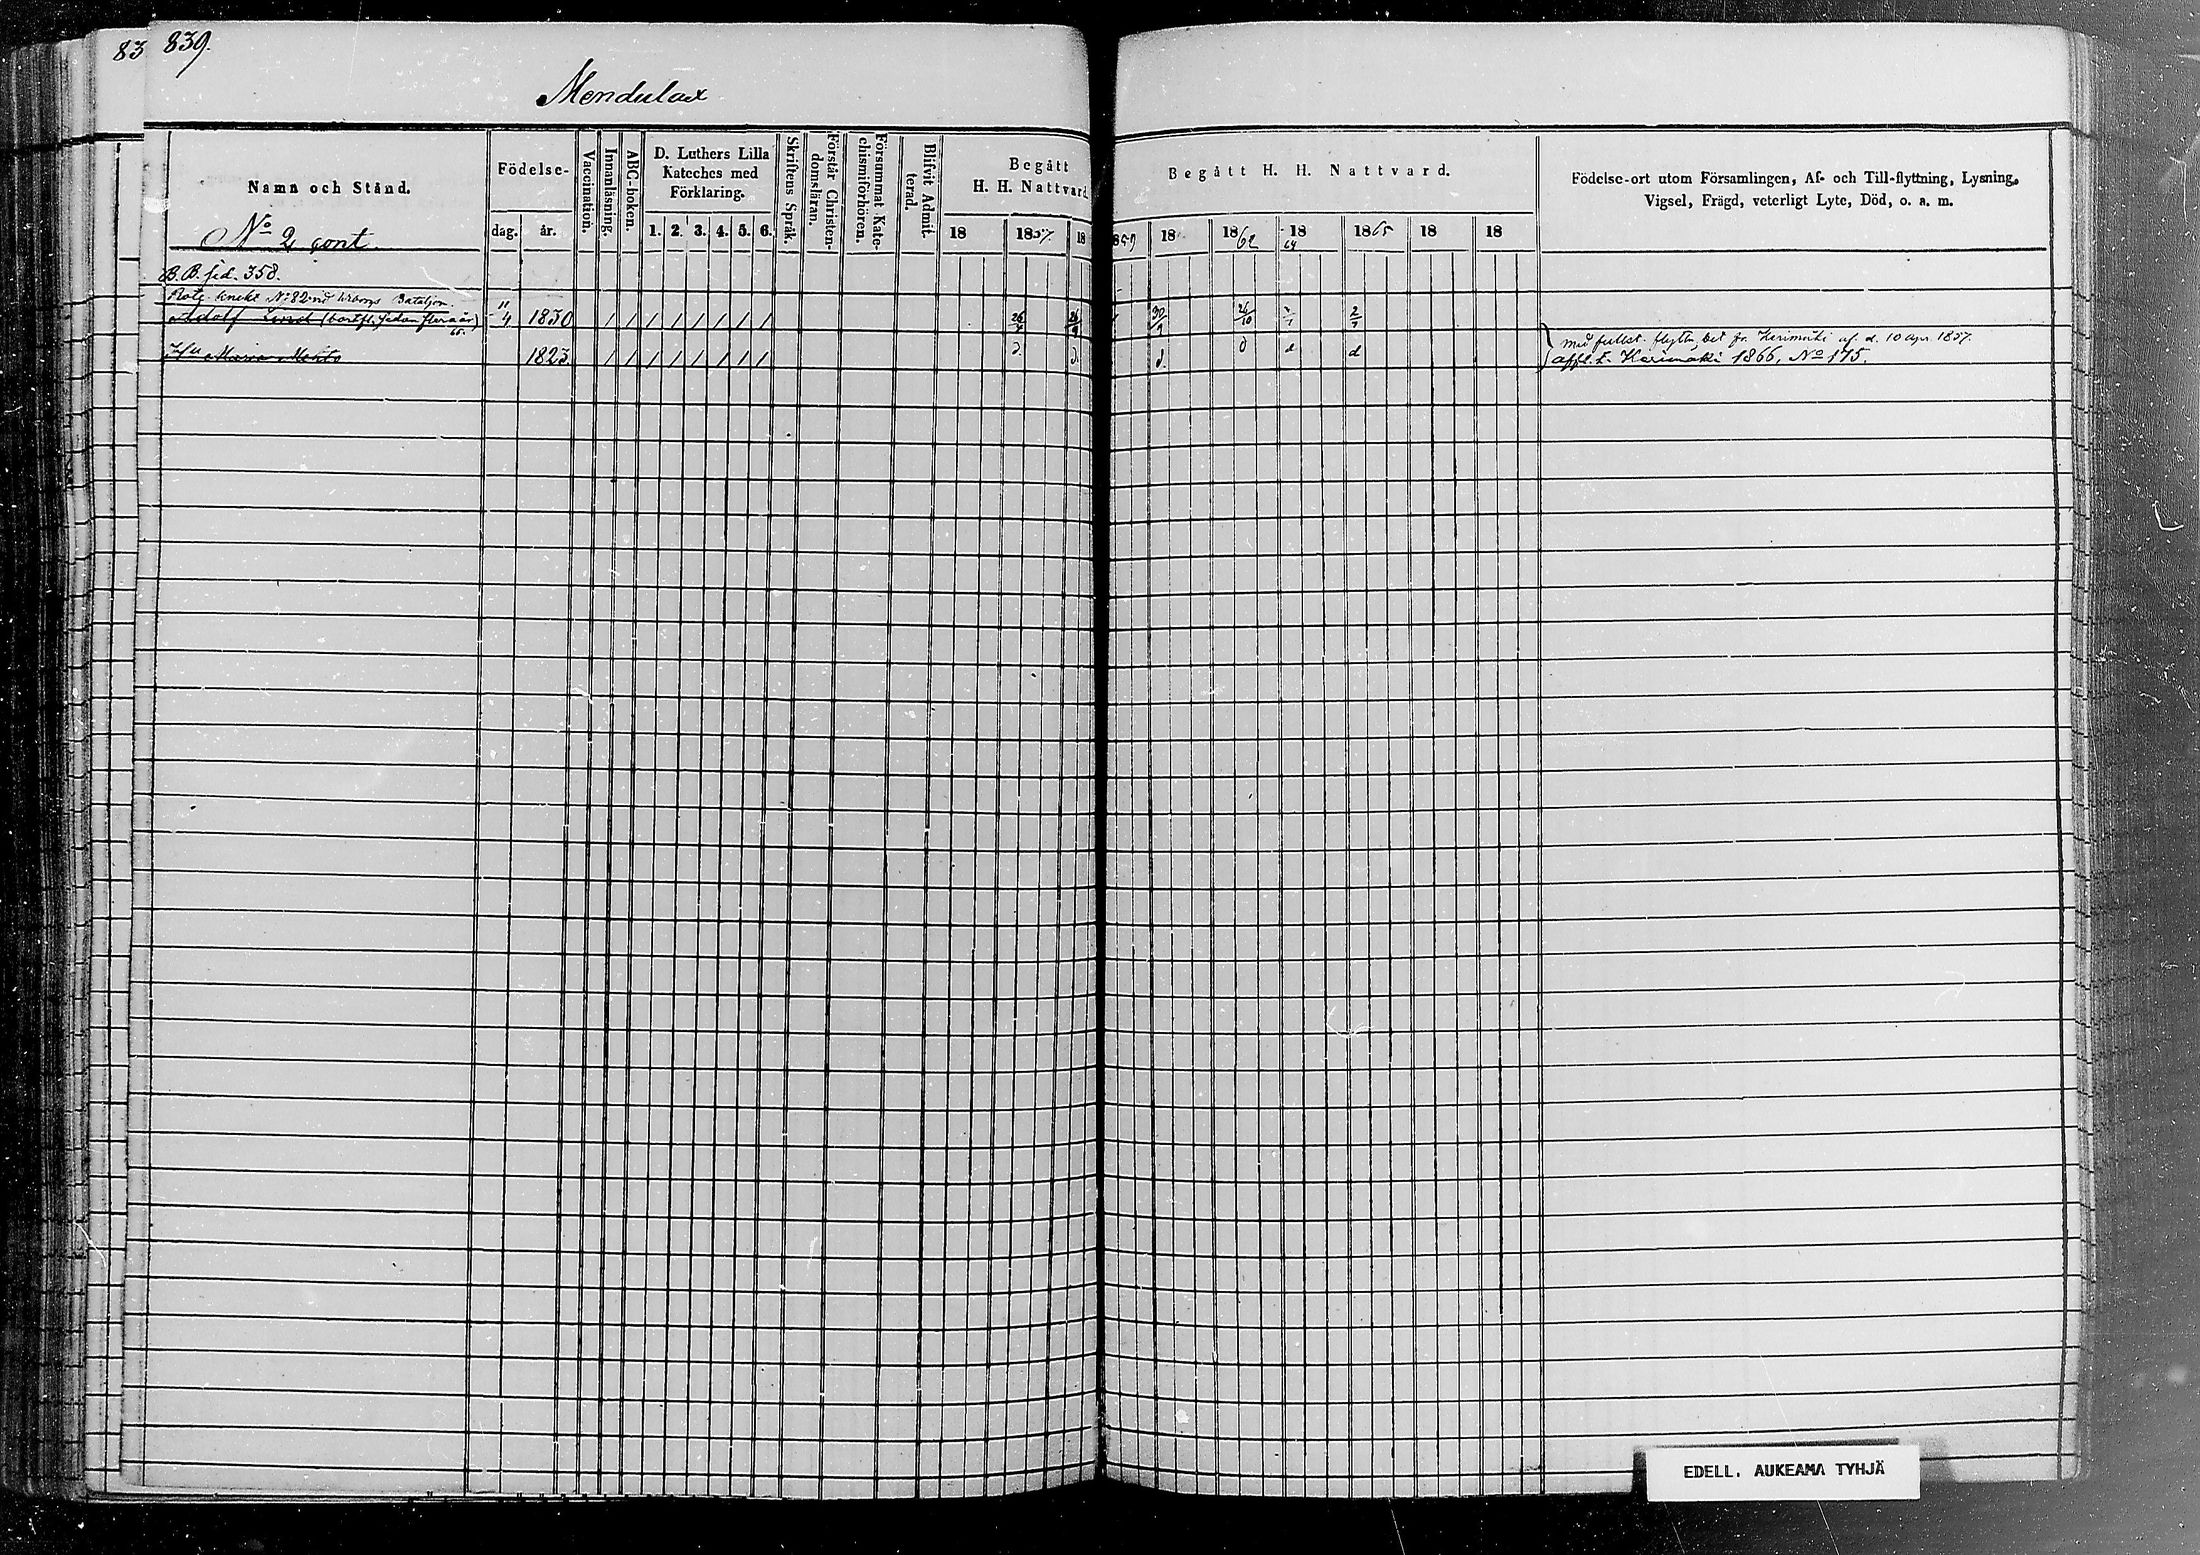 83 839.
Mendulax
Namn och Stånd.
Födelse-
dag. år.
Vaccination.
Innanläsning.
ABC-boken.
D. Luthers Lilla
Kateches med
Förklaring.
1. 2. 3. 4. 5. 6.
Skriftens Språk.
Förstår Christen-
domsläran.
Försummat Kate-
chismiförhören.
Blifvit Admit-
terad.
Begått
H. H. Nattvard
18 1857. 18
Begått H. H. Nattvard.
1859 18 1862 1864 1865 18 18
Födelse-ort utom Församlingen, Af- och Till-flyttning, Lysning,
Vigsel, Frägd, veterligt Lyte, Död, o. a. m.
No 2 cont.
B. B. sid. 358.
Rote knekt No 82 vid Wiborgs Bataljon
Adolf Lind (bortfl. sedan flera år) 65. 11/4 1830 / / / / / / / / 26/4 26/9 30/9 26/10 2/7
Hu Maria 1823 / / / / / / / / d. d. d. d d d
Med fullst. flyttn. bet fr. Kerimäki af d. 10 Apr. 1857.
affl. t. Kerimäki 1866, No 175.
EDELL. AUKEAMA TYHJÄ